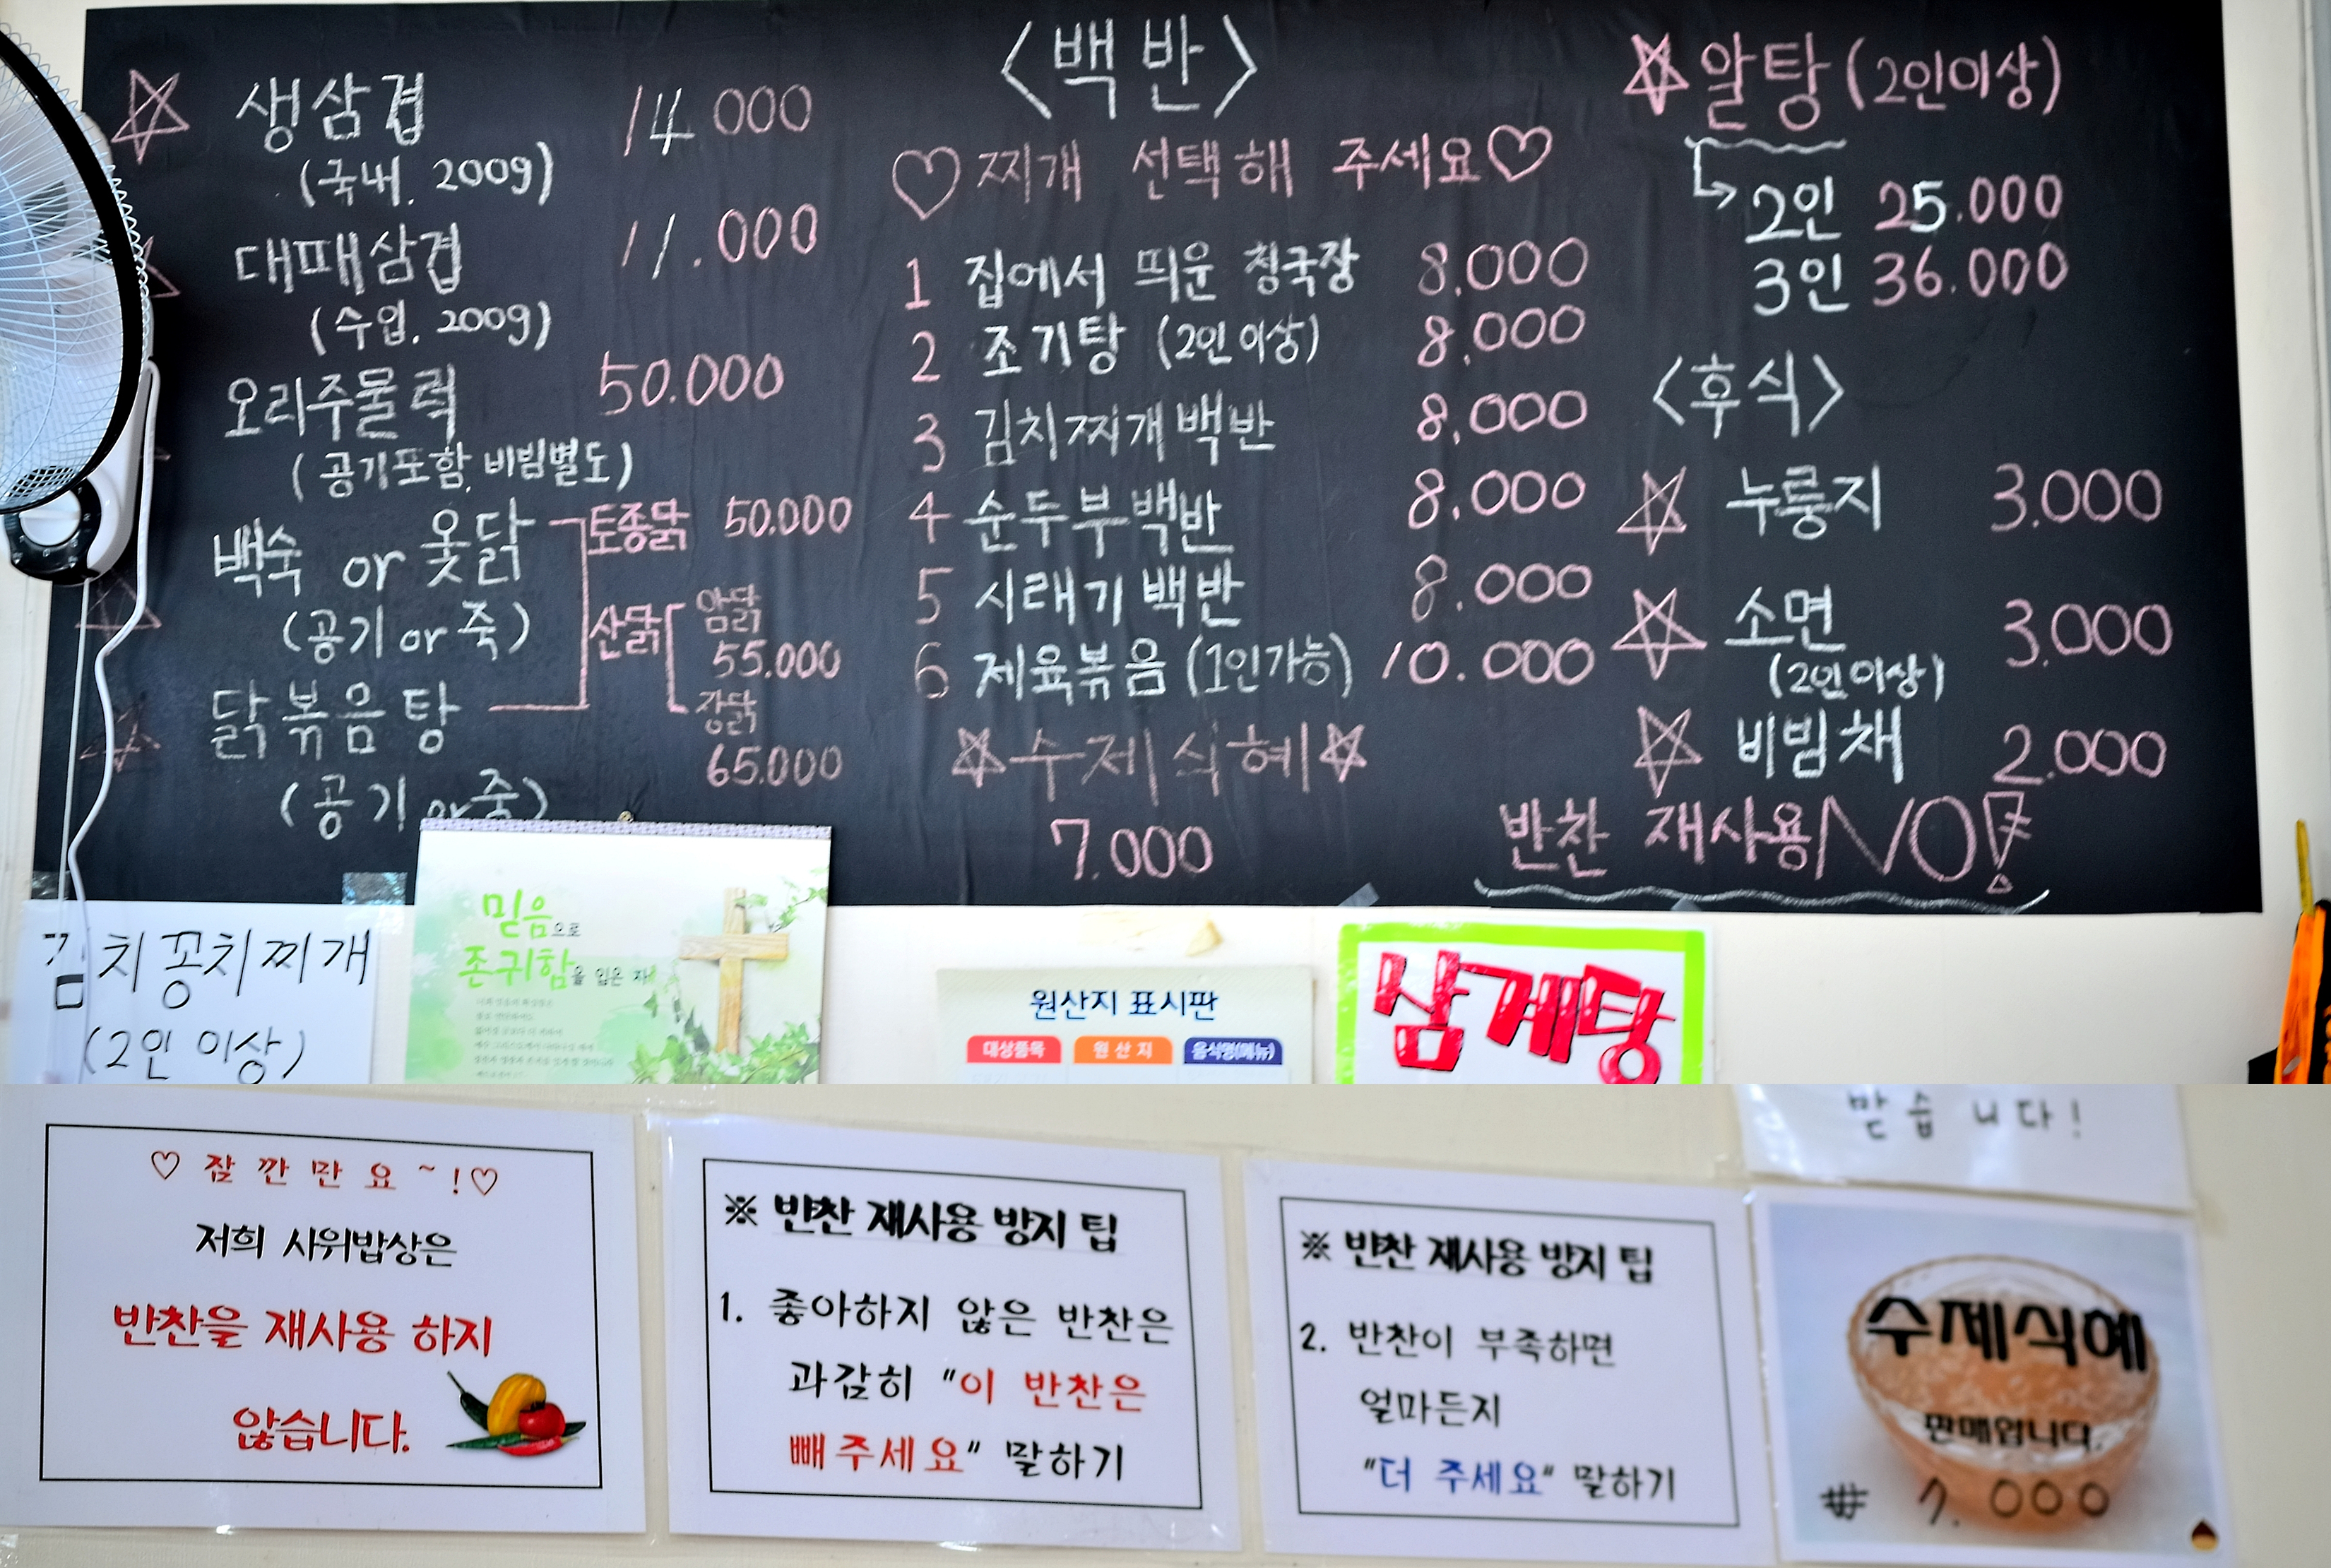 생삼겹 14.000
(국내. 200g)
대패삼겹 11.000
(수입. 200g)
오리주물럭 50.000
(공기포함. 비빔별도)
백숙 or 옻닭
(공기 or 죽)
닭볶음탕
(공기 or 죽)
토종닭 50.000
산닭
암닭
55.000
장닭
65.000
<백반>
♡찌개 선택해 주세요♡
1 집에서 띄운 청국장 8.000
2 조기탕 (2인이상) 8.000
3 김치찌개백반 8.000
4 순두부백반 8.000
5 시래기백반 8.000
6 제육볶음 (1인가능) 10.000
☆수제식혜☆
7.000
☆알탕 (2인이상)
2인 25.000
3인 36.000
<후식>
☆ 누룽지 3.000
☆ 소면 3.000
(2인이상)
☆ 비빔채 2.000
반찬 재사용 NO!
김치꽁치찌개
(2인 이상)
믿음으로
존귀함을 입은 자
원산지 표시판
대상품목 원산지 음식명(메뉴)
삼계탕
♡ 잠깐만요~!♡
저희 사위밥상은
반찬을 재사용 하지
않습니다.
※ 반찬 재사용 방지 팁
1. 좋아하지 않은 반찬은
과감히 "이 반찬은
빼주세요" 말하기
※ 반찬 재사용 방지 팁
2. 반찬이 부족하면
얼마든지
"더 주세요" 말하기
받습니다!
수제식혜
판매합니다.
₩ 7.000